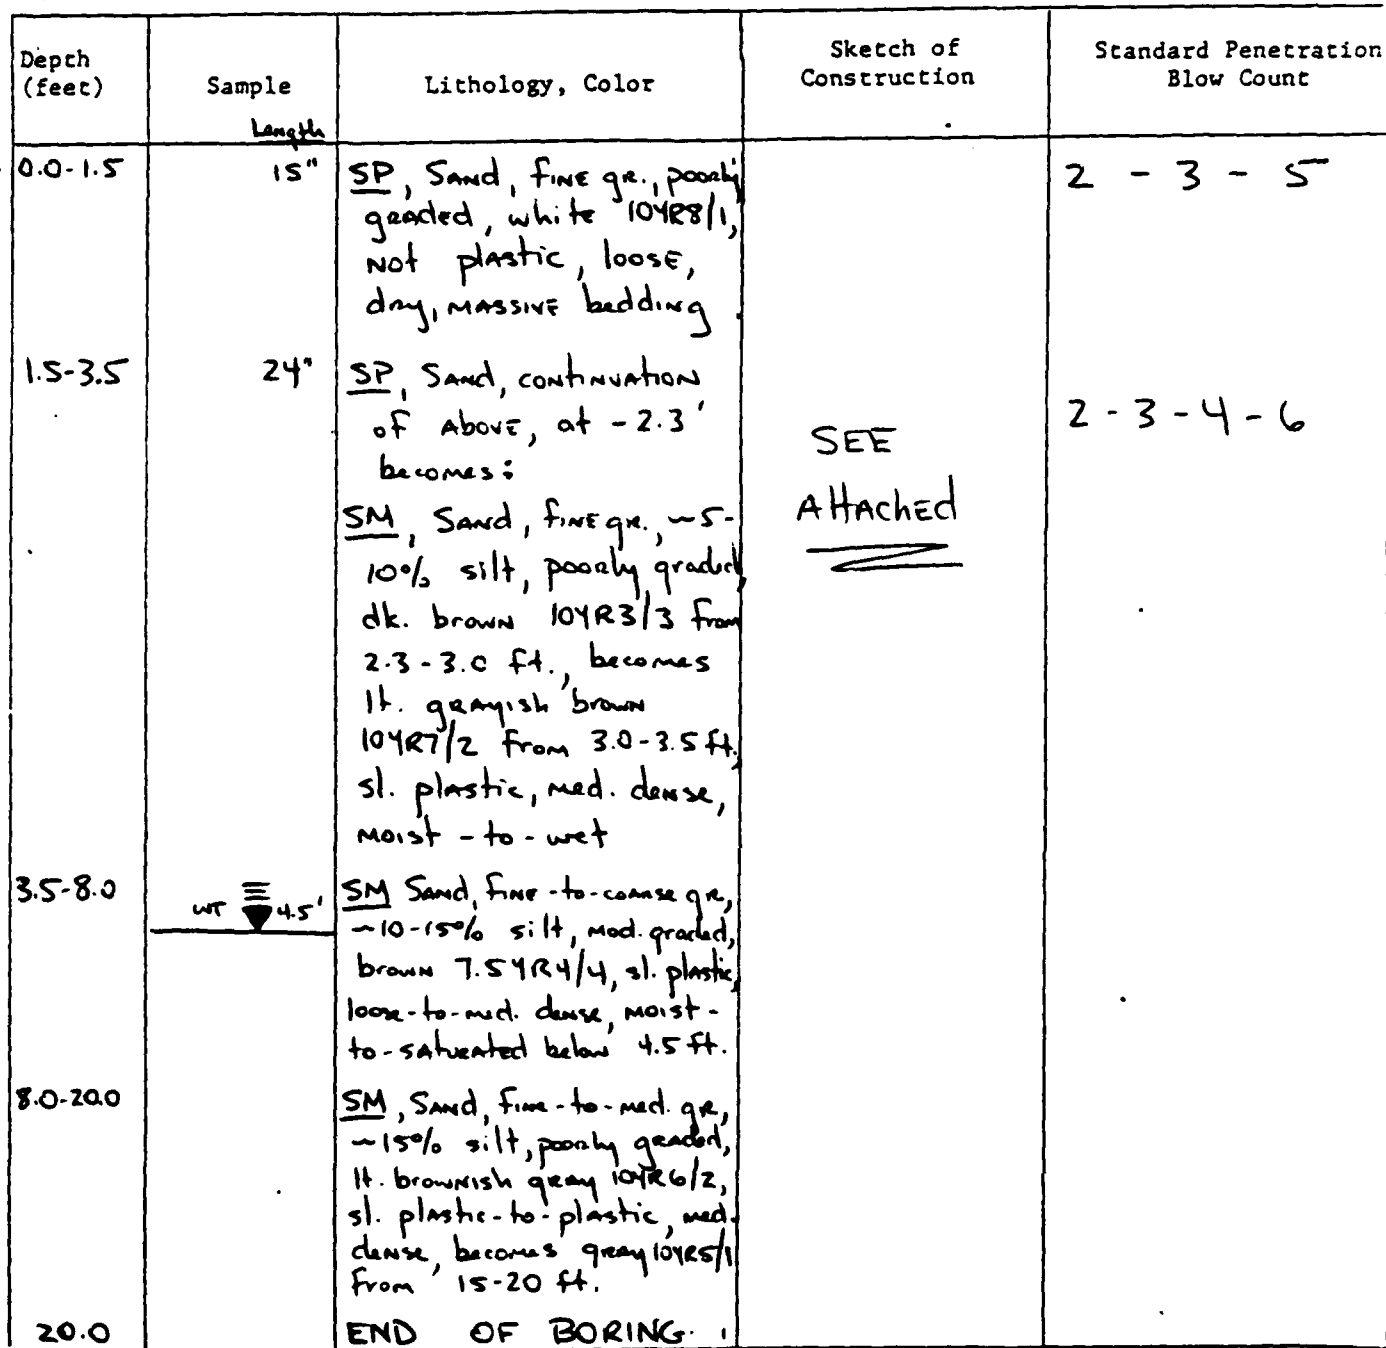 Depth
(feet)
Sample
Length
Lithology, Color
Sketch of
Construction
Standard Penetration
Blow Count
0.0-1.5
15"
SP, Sand, fine gr., poorly
graded, white 10YR8/1,
Not plastic, loose,
dry, massive bedding
2 - 3 - 5
1.5-3.5
24"
SP, Sand, continuation
of above, at -2.3'
becomes:
2 - 3 - 4 - 6
SM, Sand, fine gr., ~5-
10% silt, poorly graded,
dk. brown 10YR3/3 from
2.3-3.0 ft., becomes
lt. grayish brown
10YR7/2 from 3.0-3.5 ft.,
sl. plastic, med. dense,
moist-to-wet
SEE
Attached
3.5-8.0
WT 4.5'
SM Sand, fine-to-coarse gr,
~10-15% silt, mod. graded,
brown 7.5YR4/4, sl. plastic,
loose-to-med. dense, moist-
to-saturated below 4.5 ft.
8.0-20.0
SM, Sand, fine-to-med. gr,
~15% silt, poorly graded,
lt. brownish gray 10YR6/2,
sl. plastic-to-plastic, med.
dense, becomes gray 10YR5/1
from 15-20 ft.
20.0
END OF BORING